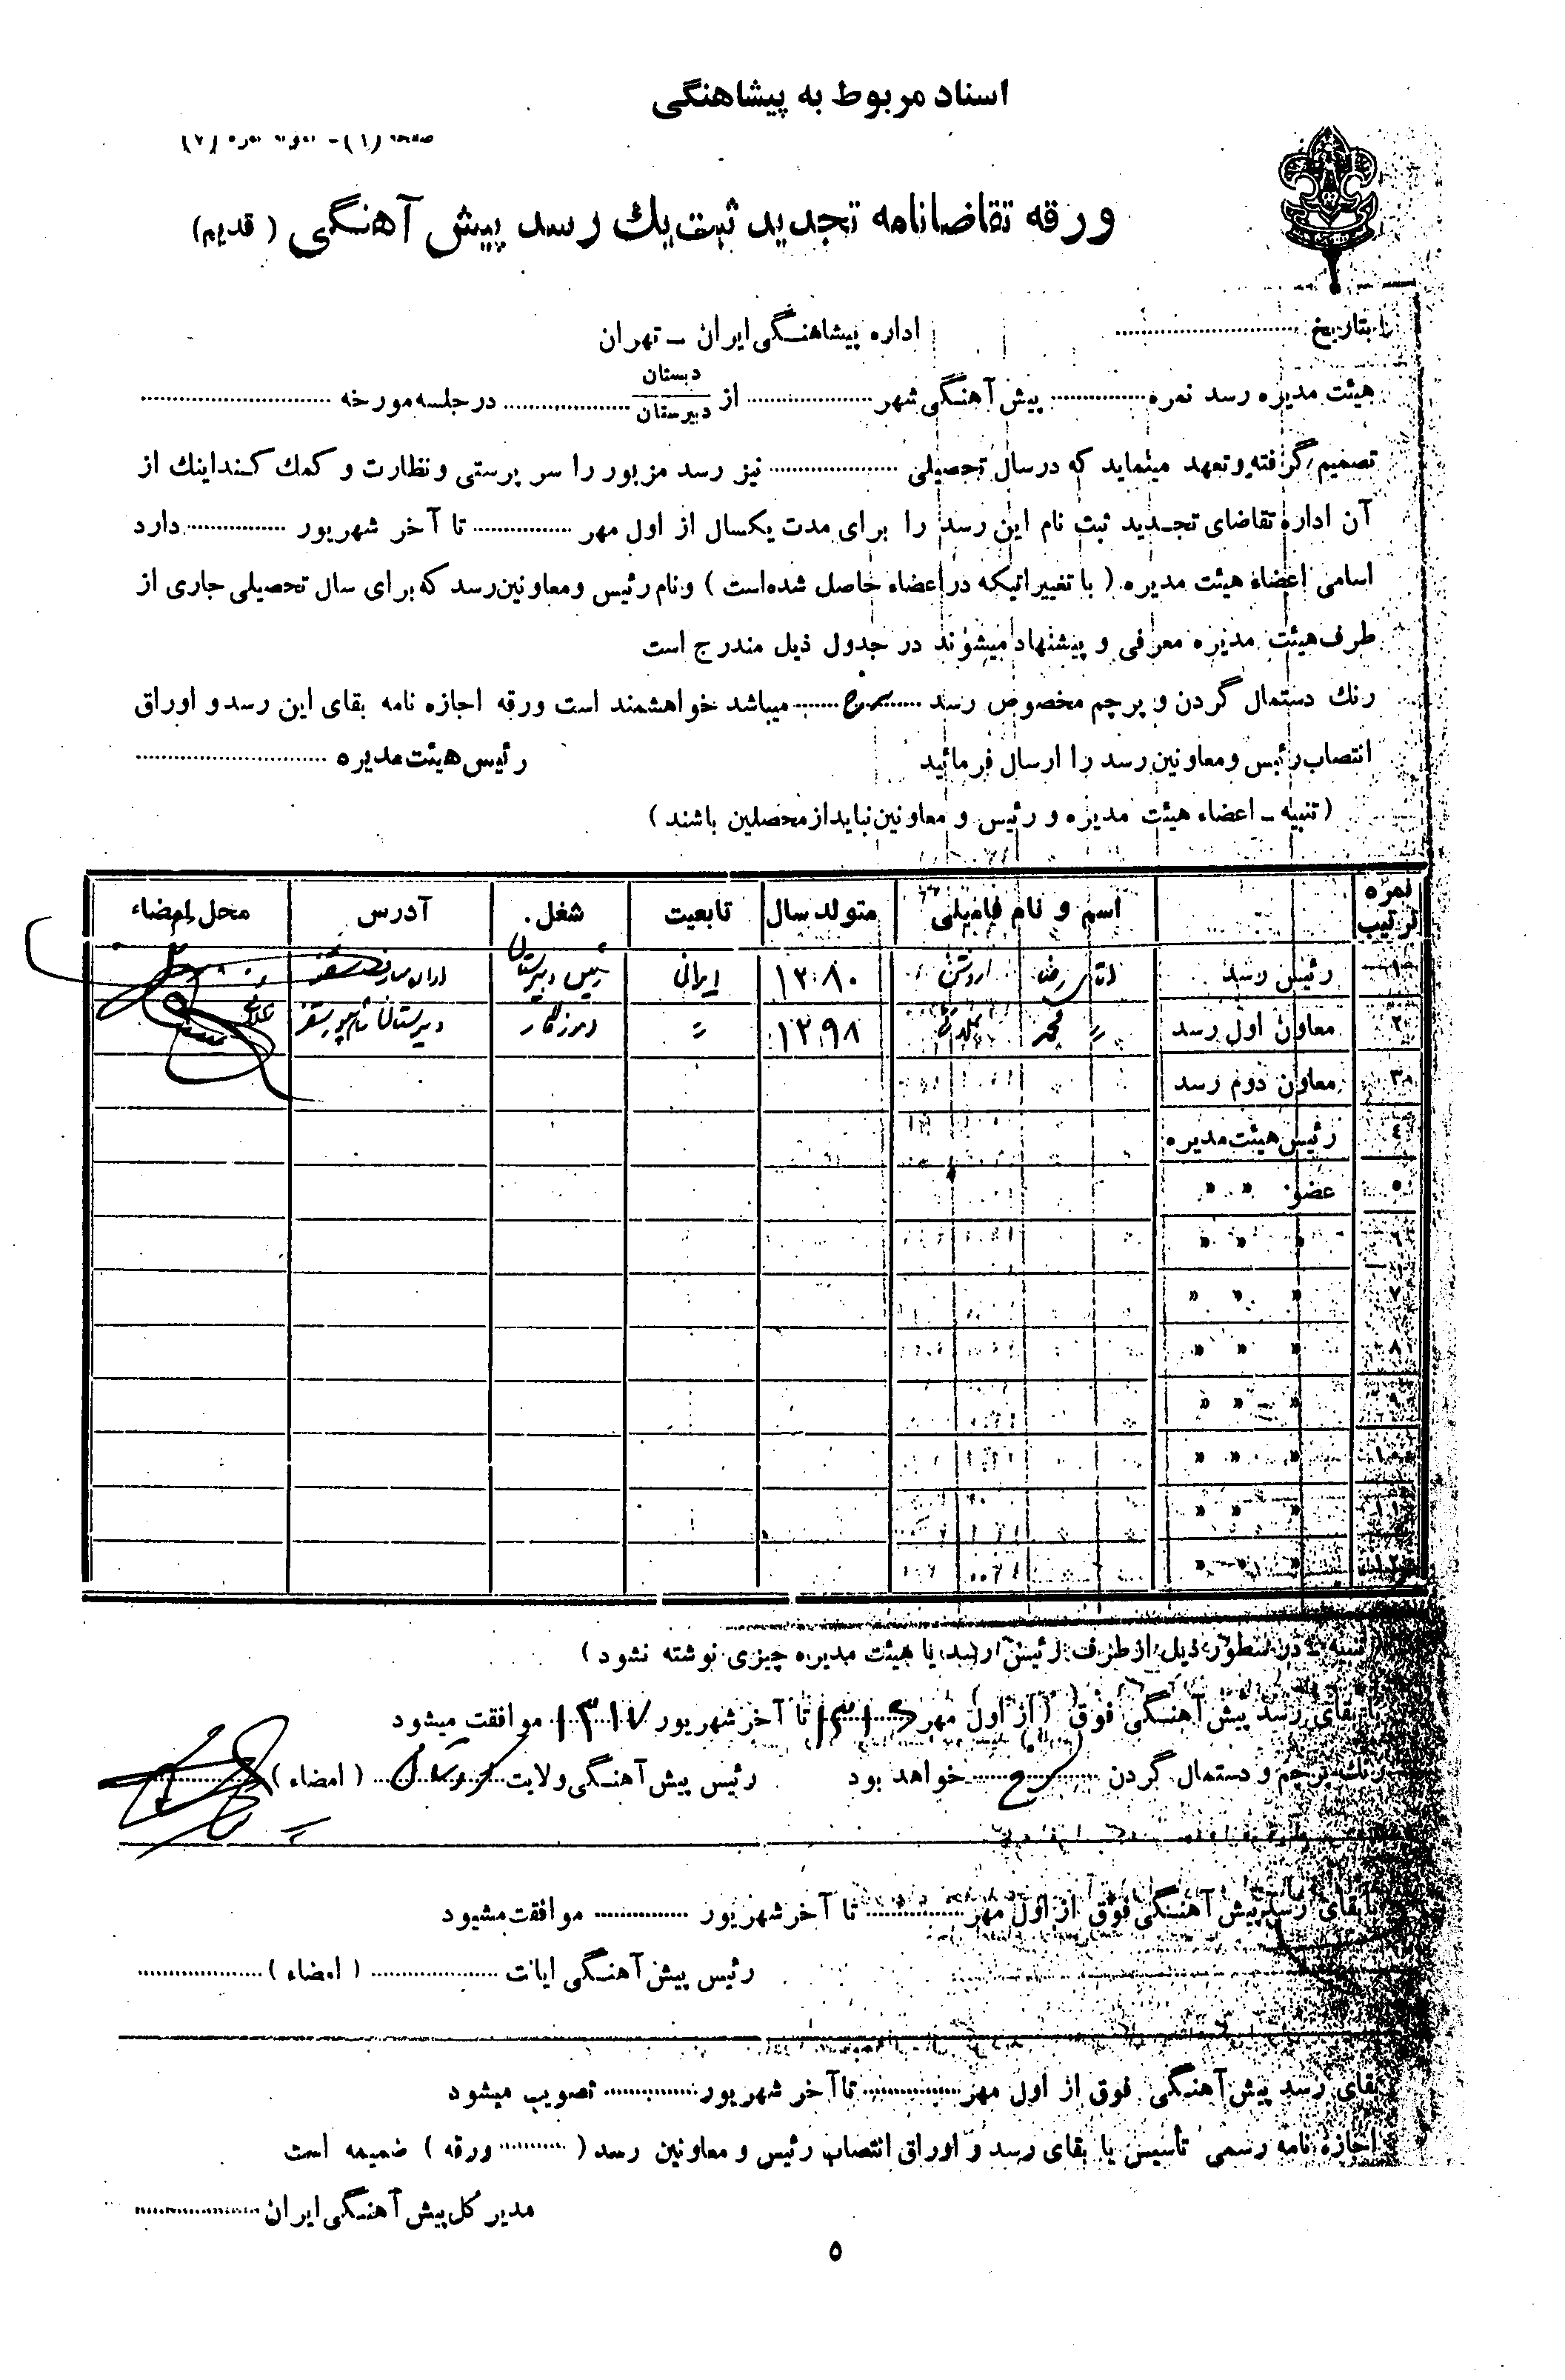 اسناد مربوط به پیشاهنگی
صفحه (۱) - نمونه نمره (۷)
ورقه تقاضانامه تجدید ثبت یك رسد پیش آهنگی ( قدیم )
بتاریخ
اداره پیشاهنگی ایران ـ تهران
هیئت مدیره رسد نمره ............ پیش آهنگی شهر ............ از دبستان / دبیرستان ............ در جلسه مورخه ............
تصمیم گرفته و تعهد مینماید که در سال تحصیلی ............ نیز رسد مزبور را سر پرستی و نظارت و کمك کند اینك از
آن اداره تقاضای تجدید ثبت نام این رسد را برای مدت یکسال از اول مهر ............ تا آخر شهریور ............ دارد
اسامی اعضاء هیئت مدیره ( با تغییراتیکه در اعضاء حاصل شده است ) و نام رئیس و معاونین رسد که برای سال تحصیلی جاری از
طرف هیئت مدیره معرفی و پیشنهاد میشوند در جدول ذیل مندرج است
رنك دستمال گردن و پرچم مخصوص رسد ...... سرخ ...... میباشد خواهشمند است ورقه اجازه نامه بقای این رسد و اوراق
انتصاب رئیس و معاونین رسد را ارسال فرمائید
رئیس هیئت مدیره ............
( تنبیه ـ اعضاء هیئت مدیره و رئیس و معاونین نباید از محصلین باشند )
نمره ترتیب | اسم و نام فامیلی | متولد سال | تابعیت | شغل | آدرس | محل امضاء
۱ رئیس رسد آقای رضا ۱۲۸۰ ایرانی رئیس دبیرستان سقز
۲ معاون اول رسد 〃 محمد ۱۲۹۸ 〃 آموزگار دبیرستان شاهپور سقز
۳ معاون دوم رسد
٤ رئیس هیئت مدیره
۵ عضو » »
٦ » » »
۷ » » »
۸ » » »
۹ » » »
۱۰ » » »
۱۱ » » »
۱۲ » » »
تنبیه ـ در سطور ذیل از طرف رئیس رسد یا هیئت مدیره چیزی نوشته نشود )
با بقای رسد پیش آهنگی فوق از اول مهر ۱۳۱۶ تا آخر شهریور ۱۳۱۷ موافقت میشود
رنك پرچم و دستمال گردن ...... سرخ ...... خواهد بود
رئیس پیش آهنگی ولایت کردستان ( امضاء )
با بقای رسد پیش آهنگی فوق از اول مهر ............ تا آخر شهریور ............ موافقت مشیود
رئیس پیش آهنگی ایالت ............ ( امضاء ) ............
بقای رسد پیش آهنگی فوق از اول مهر ............ تا آخر شهریور ............ تصویب میشود
اجازه نامه رسمی تأسیس یا بقای رسد و اوراق انتصاب رئیس و معاونین رسد ( ......... ورقه ) ضمیمه است
مدیر کل پیش آهنگی ایران ............
۵